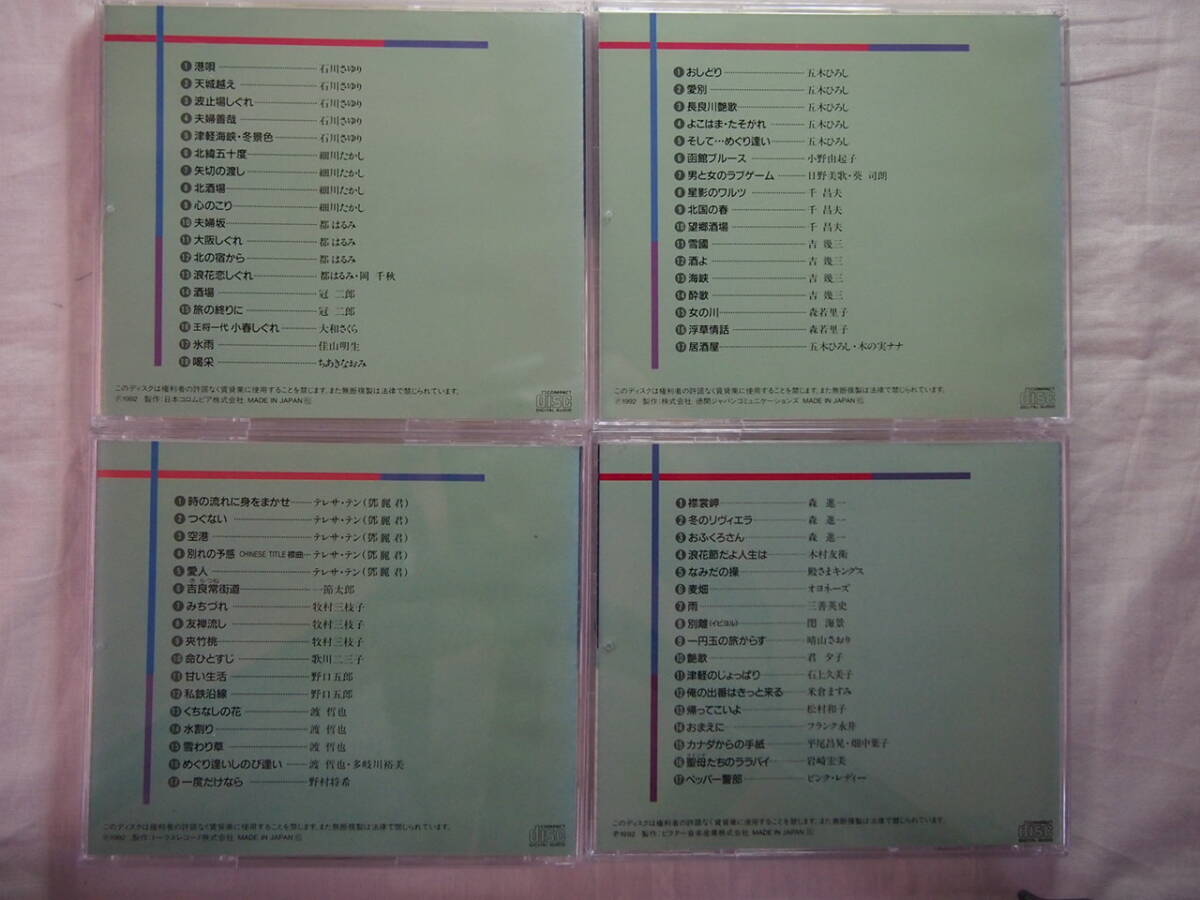 ❶港唄 石川さゆり
❷天城越え 石川さゆり
❸波止場しぐれ 石川さゆり
❹夫婦善哉 石川さゆり
❺津軽海峡・冬景色 石川さゆり
❻北緯五十度 細川たかし
❼矢切の渡し 細川たかし
❽北酒場 細川たかし
❾心のこり 細川たかし
❿夫婦坂 都 はるみ
⓫大阪しぐれ 都 はるみ
⓬北の宿から 都 はるみ
⓭浪花恋しぐれ 都はるみ・岡 千秋
⓮酒場 冠 二郎
⓯旅の終りに 冠 二郎
⓰王将一代 小春しぐれ 大和さくら
⓱氷雨 佳山明生
⓲喝采 ちあきなおみ
このディスクは権利者の許諾なく賃貸業に使用することを禁じます。また無断複製は法律で禁じられています。
℗1992 製作/日本コロムビア株式会社 MADE IN JAPAN
COMPACT disc DIGITAL AUDIO
❶おしどり 五木ひろし
❷愛別 五木ひろし
❸長良川艶歌 五木ひろし
❹よこはま・たそがれ 五木ひろし
❺そして…めぐり逢い 五木ひろし
❻函館ブルース 小野由起子
❼男と女のラブゲーム 日野美歌・葵 司朗
❽星影のワルツ 千 昌夫
❾北国の春 千 昌夫
❿望郷酒場 千 昌夫
⓫雪國 吉 幾三
⓬酒よ 吉 幾三
⓭海峡 吉 幾三
⓮酔歌 吉 幾三
⓯女の川 森若里子
⓰浮草情話 森若里子
⓱居酒屋 五木ひろし・木の実ナナ
このディスクは権利者の許諾なく賃貸業に使用することを禁じます。また無断複製は法律で禁じられています。
℗1992 製作/株式会社 徳間ジャパンコミュニケーションズ MADE IN JAPAN
COMPACT disc DIGITAL AUDIO
❶時の流れに身をまかせ テレサ・テン(鄧麗君)
❷つぐない テレサ・テン(鄧麗君)
❸空港 テレサ・テン(鄧麗君)
❹別れの予感 CHINESE TITLE 襟曲 テレサ・テン(鄧麗君)
❺愛人 テレサ・テン(鄧麗君)
きらつね
❻吉良常街道 一節太郎
❼みちづれ 牧村三枝子
❽友禅流し 牧村三枝子
❾夾竹桃 牧村三枝子
❿命ひとすじ 歌川二三子
⓫甘い生活 野口五郎
⓬私鉄沿線 野口五郎
⓭くちなしの花 渡 哲也
⓮水割り 渡 哲也
⓯雪わり草 渡 哲也
⓰めぐり逢いしのび逢い 渡 哲也・多岐川裕美
⓱一度だけなら 野村将希
このディスクは権利者の許諾なく賃貸業に使用することを禁じます。また無断複製は法律で禁じられています。
℗1992 製作/トーラスレコード株式会社 MADE IN JAPAN
COMPACT disc DIGITAL AUDIO
❶襟裳岬 森 進一
❷冬のリヴィエラ 森 進一
❸おふくろさん 森 進一
❹浪花節だよ人生は 木村友衛
❺なみだの操 殿さまキングス
❻麦畑 オヨネーズ
❼雨 三善英史
❽別離(イビョル) 関 海景
❾一円玉の旅がらす 晴山さおり
❿艶歌 君 夕子
⓫津軽のじょっぱり 石上久美子
⓬俺の出番はきっと来る 米倉ますみ
⓭帰ってこいよ 松村和子
⓮おまえに フランク永井
⓯カナダからの手紙 平尾昌晃・畑中葉子
⓰聖母たちのララバイ 岩崎宏美
⓱ペッパー警部 ピンク・レディー
このディスクは権利者の許諾なく賃貸業に使用することを禁じます。また無断複製は法律で禁じられています。
℗1992 製作/ビクター音楽産業株式会社 MADE IN JAPAN
COMPACT disc DIGITAL AUDIO